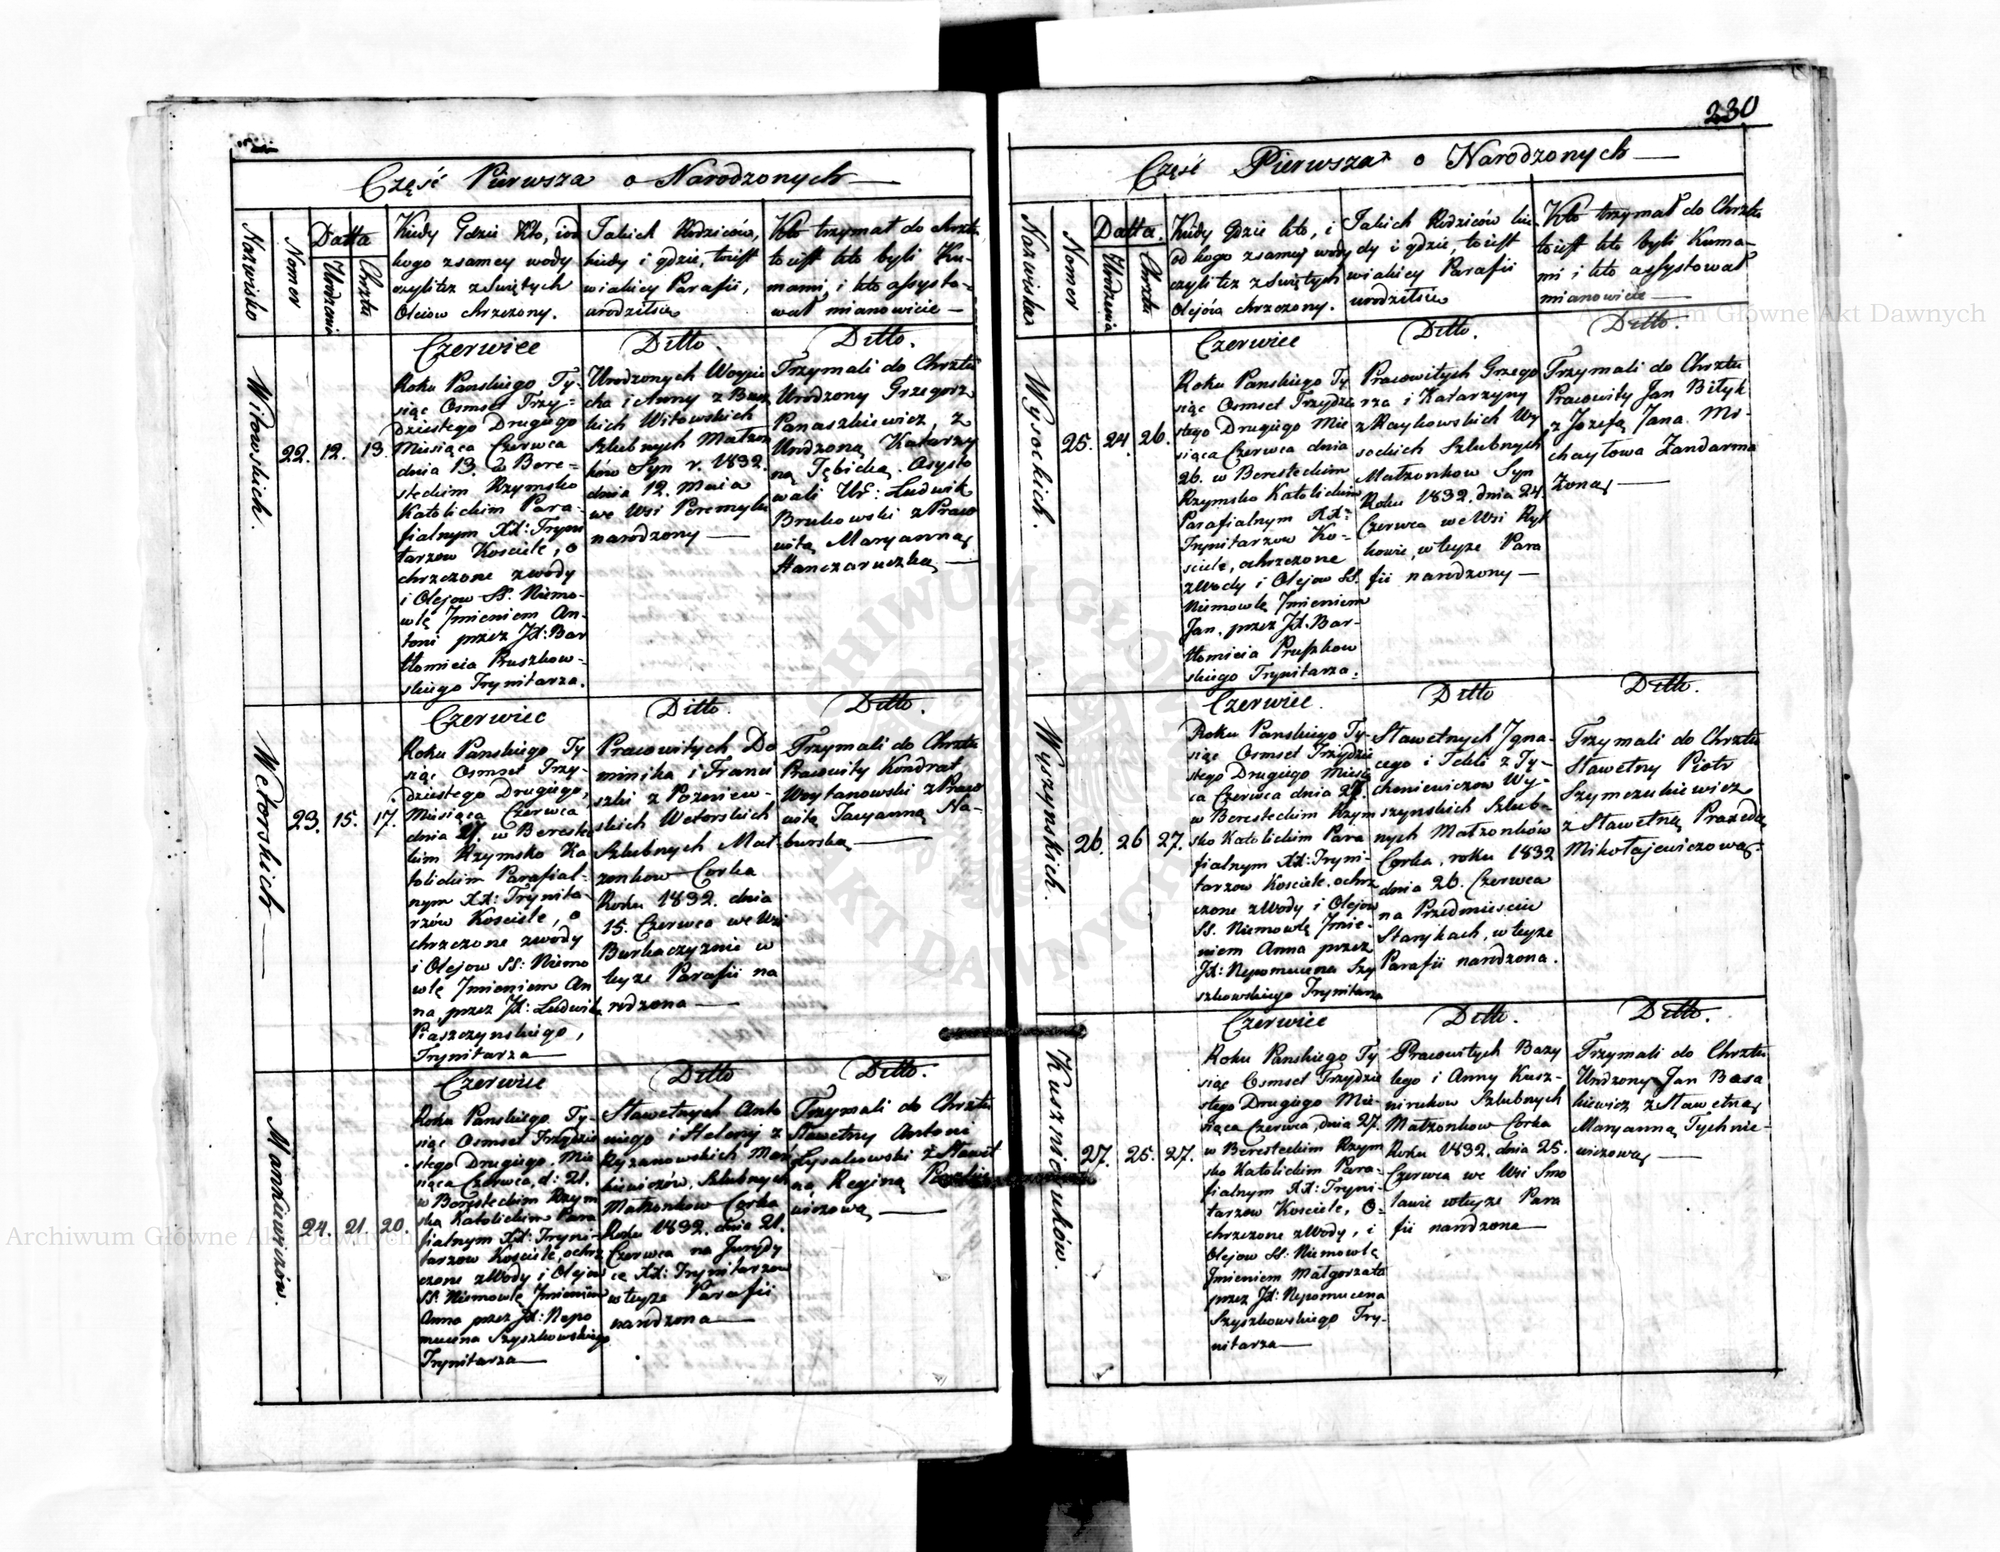 230
Część Pierwsza o Narodzonych
Nazwisko
Numer
Datta
Urodzenia
Chrztu
Kiedy Gdzie Kto, i od
kogo z samey wody
czyli też z Świętych
Oleiow chrzczony.
Jakich Rodziców,
kiedy i gdzie, to iest
w iakiey Parafii,
urodził się
Kto trzymał do chrztu
to iest kto byli Ku-
mami, i kto assysto-
wał mianowicie
Witowskich.
22.
12.
13.
Czerwiec
Roku Panskiego Ty-
siąc Osmset Trzy-
dziestego Drugiego
Miesiąca Czerwca
dnia 13. w Bere-
steckim Rzymsko
Katolickim Para-
fialnym XX: Tryni
tarzow Kosciele, o
chrzczone z wody
i Olejow S. Niemo-
wlę Jmieniem An-
toni przez JX: Bar
tłomieia Pruszkow-
skiego Trynitarza.
Ditto.
Urodzonych Woycie
cha i Anny z Bur
kich Witowskich
Szlubnych Małżon
kow Syn r. 1832.
dnia 12. Maia
we Wsi Peremylu
narodzony
Ditto.
Trzymali do Chrztu
Urodzony Grzegorz
Panaszkiewicz, z
Urodzoną Katarzy
ną Tębicką. Asysto
wali Ur: Ludwik
Brukowski z Praco
witą Maryanną
Hanczaruczką
Wetorskich
23.
15.
17.
Czerwiec
Roku Panskiego Ty
siąc Osmset Trzy-
dziestego Drugiego,
Miesiąca Czerwca
dnia 17. w Bereste
kim Rzymsko Ka
tolickim Parafial-
nym XX: Trynita
rzów Kosciele, o
chrzczone z wody
i Olejow SS: Niemo
wlę Jmieniem An
na, przez JX: Ludwik
Piaszczynskiego,
Trynitarza
Ditto.
Pracowitych Do
minika i Franci
szki z Pozniew-
skich Wetorskich
Szlubnych Mał-
zonkow Corka
Roku 1832. dnia
15. Czerwca we Wsi
Burkaczyznie w
teyze Parafii na
rodzona
Ditto.
Trzymali do Chrztu
Pracowity Kondrat
Woytanowski z Praco
witą Taryanną Na-
burską
Mankiewiczów.
24.
21.
20.
Czerwiec
Roku Panskiego Ty-
siąc Osmset Trzydzie
stego Drugiego Mie
siąca Czerwca, d: 21.
w Beresteckim Rzym
ska Katolickim Para
fialnym XX: Tryni-
tarzow Kosciele, ochrz
czone z Wody i Olejow
SS: Niemowlę Jmieniem
Anna przez JX: Nepo
mucena Szyszkowskiego
Trynitarza
Ditto
Sławetnych Anto
niego i Heleny z
Ryzanowskich Man
kiewiczów, Szlubnych
Małżonkow Corka
Roku 1832. dnia 21.
Czerwca na Jurydy
ce XX: Trynitarzow
w teyze Parafii
narodzona
Ditto.
Trzymali do Chrztu
Sławetny Antoni
Łysakowski z Sławet
ną Reginą
wiczową
Część Pierwsza o Narodzonych
Nazwisko
Numer
Datta.
Urodzenia
Chrztu
Kiedy gdzie kto, i
od kogo z samey wody
czyli też z Świętych
Olejów chrzczony.
Jakich Rodziców kie
dy i gdzie, to iest
w iakiey Parafii
urodził się
Kto trzymał do Chrztu
to iest kto byli Kuma-
mi i kto assystował
mianowicie
Wysockich.
25.
24.
26.
Czerwiec
Roku Panskiego Ty
siąc Osmset Trzydzie
stego Drugiego Mie
siąca Czerwca dnia
26. w Beresteckim
Rzymsko Katolickim
Parafialnym XX:
Trynitarzow Ko-
sciele, ochrzczone
z Wody i Olejow SS.
Niemowlę Jmieniem
Jan, przez JX. Bar-
tłomieia Pruszkow
skiego Trynitarza.
Ditto.
Pracowitych Grzego
rza i Katarzyny
z Raykowskich Wy
sockich Szlubnych
Małzonkow Syn
Roku 1832. dnia 24.
Czerwca we Wsi Ryt
kowie, w teyze Para
fii narodzony
Ditto.
Trzymali do Chrztu
Pracowity Jan Bityk
z Józefą Jana Mi-
chayłowa Zandarma
Zoną
Wyszynskich.
26.
26
27.
Czerwiec.
Roku Panskiego Ty-
siąc Osmset Trzydzie
stego Drugiego Miesią
ca Czerwca dnia 27.
w Beresteckim Rzym
sko Katolickim Para
fialnym XX: Tryni-
tarzow Kosciele, ochrz
czone z Wody i Olejow
SS. Niemowlę Jmie-
niem Anna przez
JX: Nepomucena Szy
szkowskiego Trynitarza
Ditto
Sławetnych Jgna-
cego i Tekli z Ty-
choniewiczow Wy-
szynskich Szlub-
nych Małzonków
Corka, roku 1832
dnia 26. Czerwca
na Przedmieściu
Starykach, w teyze
Parafii narodzona.
Ditto.
Trzymali do Chrztu
Sławetny Piotr
Szymczukiewicz
z Sławetną Praxedą
Mikołajewiczową.
Kusznieruków.
27.
25.
27.
Czerwiec
Roku Panskiego Ty
siąc Osmset Trzydzie
stego Drugiego Mie-
siąca Czerwca, dnia 27.
w Beresteckim Rzym
sko Katolickim Para-
fialnym XX: Tryni-
tarzow Kosciele, o-
chrzczone z Wody, i
Olejow SS: Niemowlę
Jmieniem Małgorzata
przez JX: Nepomucena
Szyszkowskiego Try-
nitarza
Ditto.
Pracowitych Bazy
lego i Anny Kusz-
nirukow Szlubnych
Małzonkow Corka
Roku 1832. dnia 25.
Czerwca we Wsi Smo
lawie w teyze Para
fii narodzona
Ditto.
Trzymali do Chrztu
Urodzony Jan Basa
kiewicz z Sławetną
Maryanną Tychnie-
wiczową
Archiwum Główne Akt Dawnych
Archiwum Główne Akt Dawnych
ARCHIWUM GŁÓWNE AKT DAWNYCH